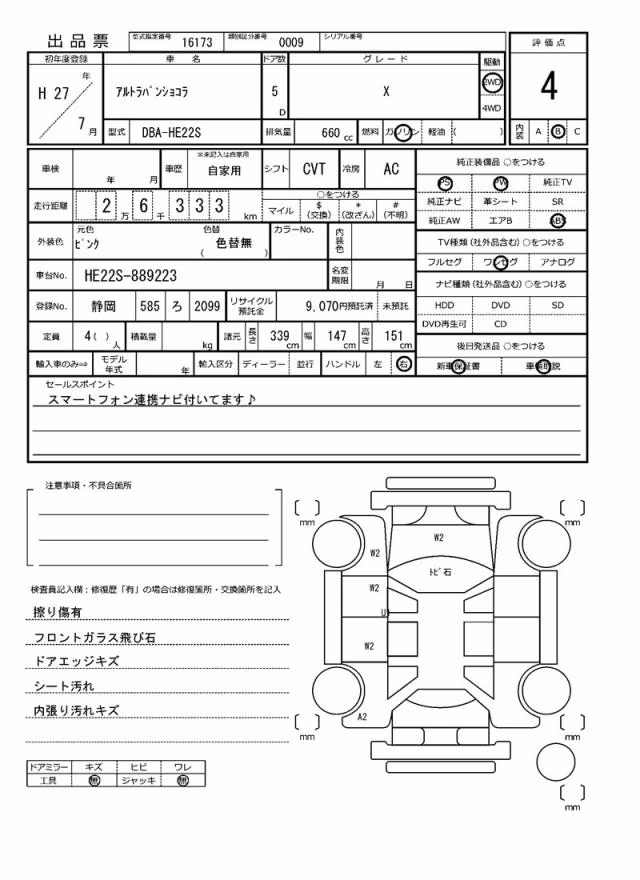 出品票
型式指定番号 16173 類別区分番号 0009 シリアル番号
評価点
4
内装 A B C
初年度登録 車名 ドア数 グレード 駆動
H 27 年 7 月
アルトラパンショコラ 5 D X 2WD 4WD
型式 DBA-HE22S 排気量 660 cc 燃料 ガソリン 軽油 ( )
車検 年 月 車歴 ※未記入は自家用 自家用 シフト CVT 冷房 AC
走行距離 2 万 6 千 3 3 3 km
○をつける
マイル $(交換) *(改ざん) #(不明)
外装色 元色 ピンク 色替 ( 色替無 ) カラーNo. 内装色
車台No. HE22S-889223 名変期限 月 日
登録No. 静岡 585 ろ 2099 リサイクル預託金 9,070円預託済 未預託
定員 4( )人 積載量 kg 諸元 長さ 339 cm 幅 147 cm 高さ 151 cm
輸入車のみ⇒ モデル年式 年 輸入区分 ディーラー 並行 ハンドル 左 右
純正装備品 ○をつける
PS PW 純正TV
純正ナビ 革シート SR
純正AW エアB ABS
TV種類(社外品含む)○をつける
フルセグ ワンセグ アナログ
ナビ種類(社外品含む)○をつける
HDD DVD SD
DVD再生可 CD
後日発送品 ○をつける
新車保証書 車輌取説
セールスポイント
スマートフォン連携ナビ付いてます♪
注意事項・不具合箇所
検査員記入欄:修復歴「有」の場合は修復箇所・交換箇所を記入
擦り傷有
フロントガラス飛び石
ドアエッジキズ
シート汚れ
内張り汚れキズ
ドアミラー キズ ヒビ ワレ
工具 無 ジャッキ 無
mm
mm
W2
W2
トビ石
W2
W2
A2
mm
mm
mm